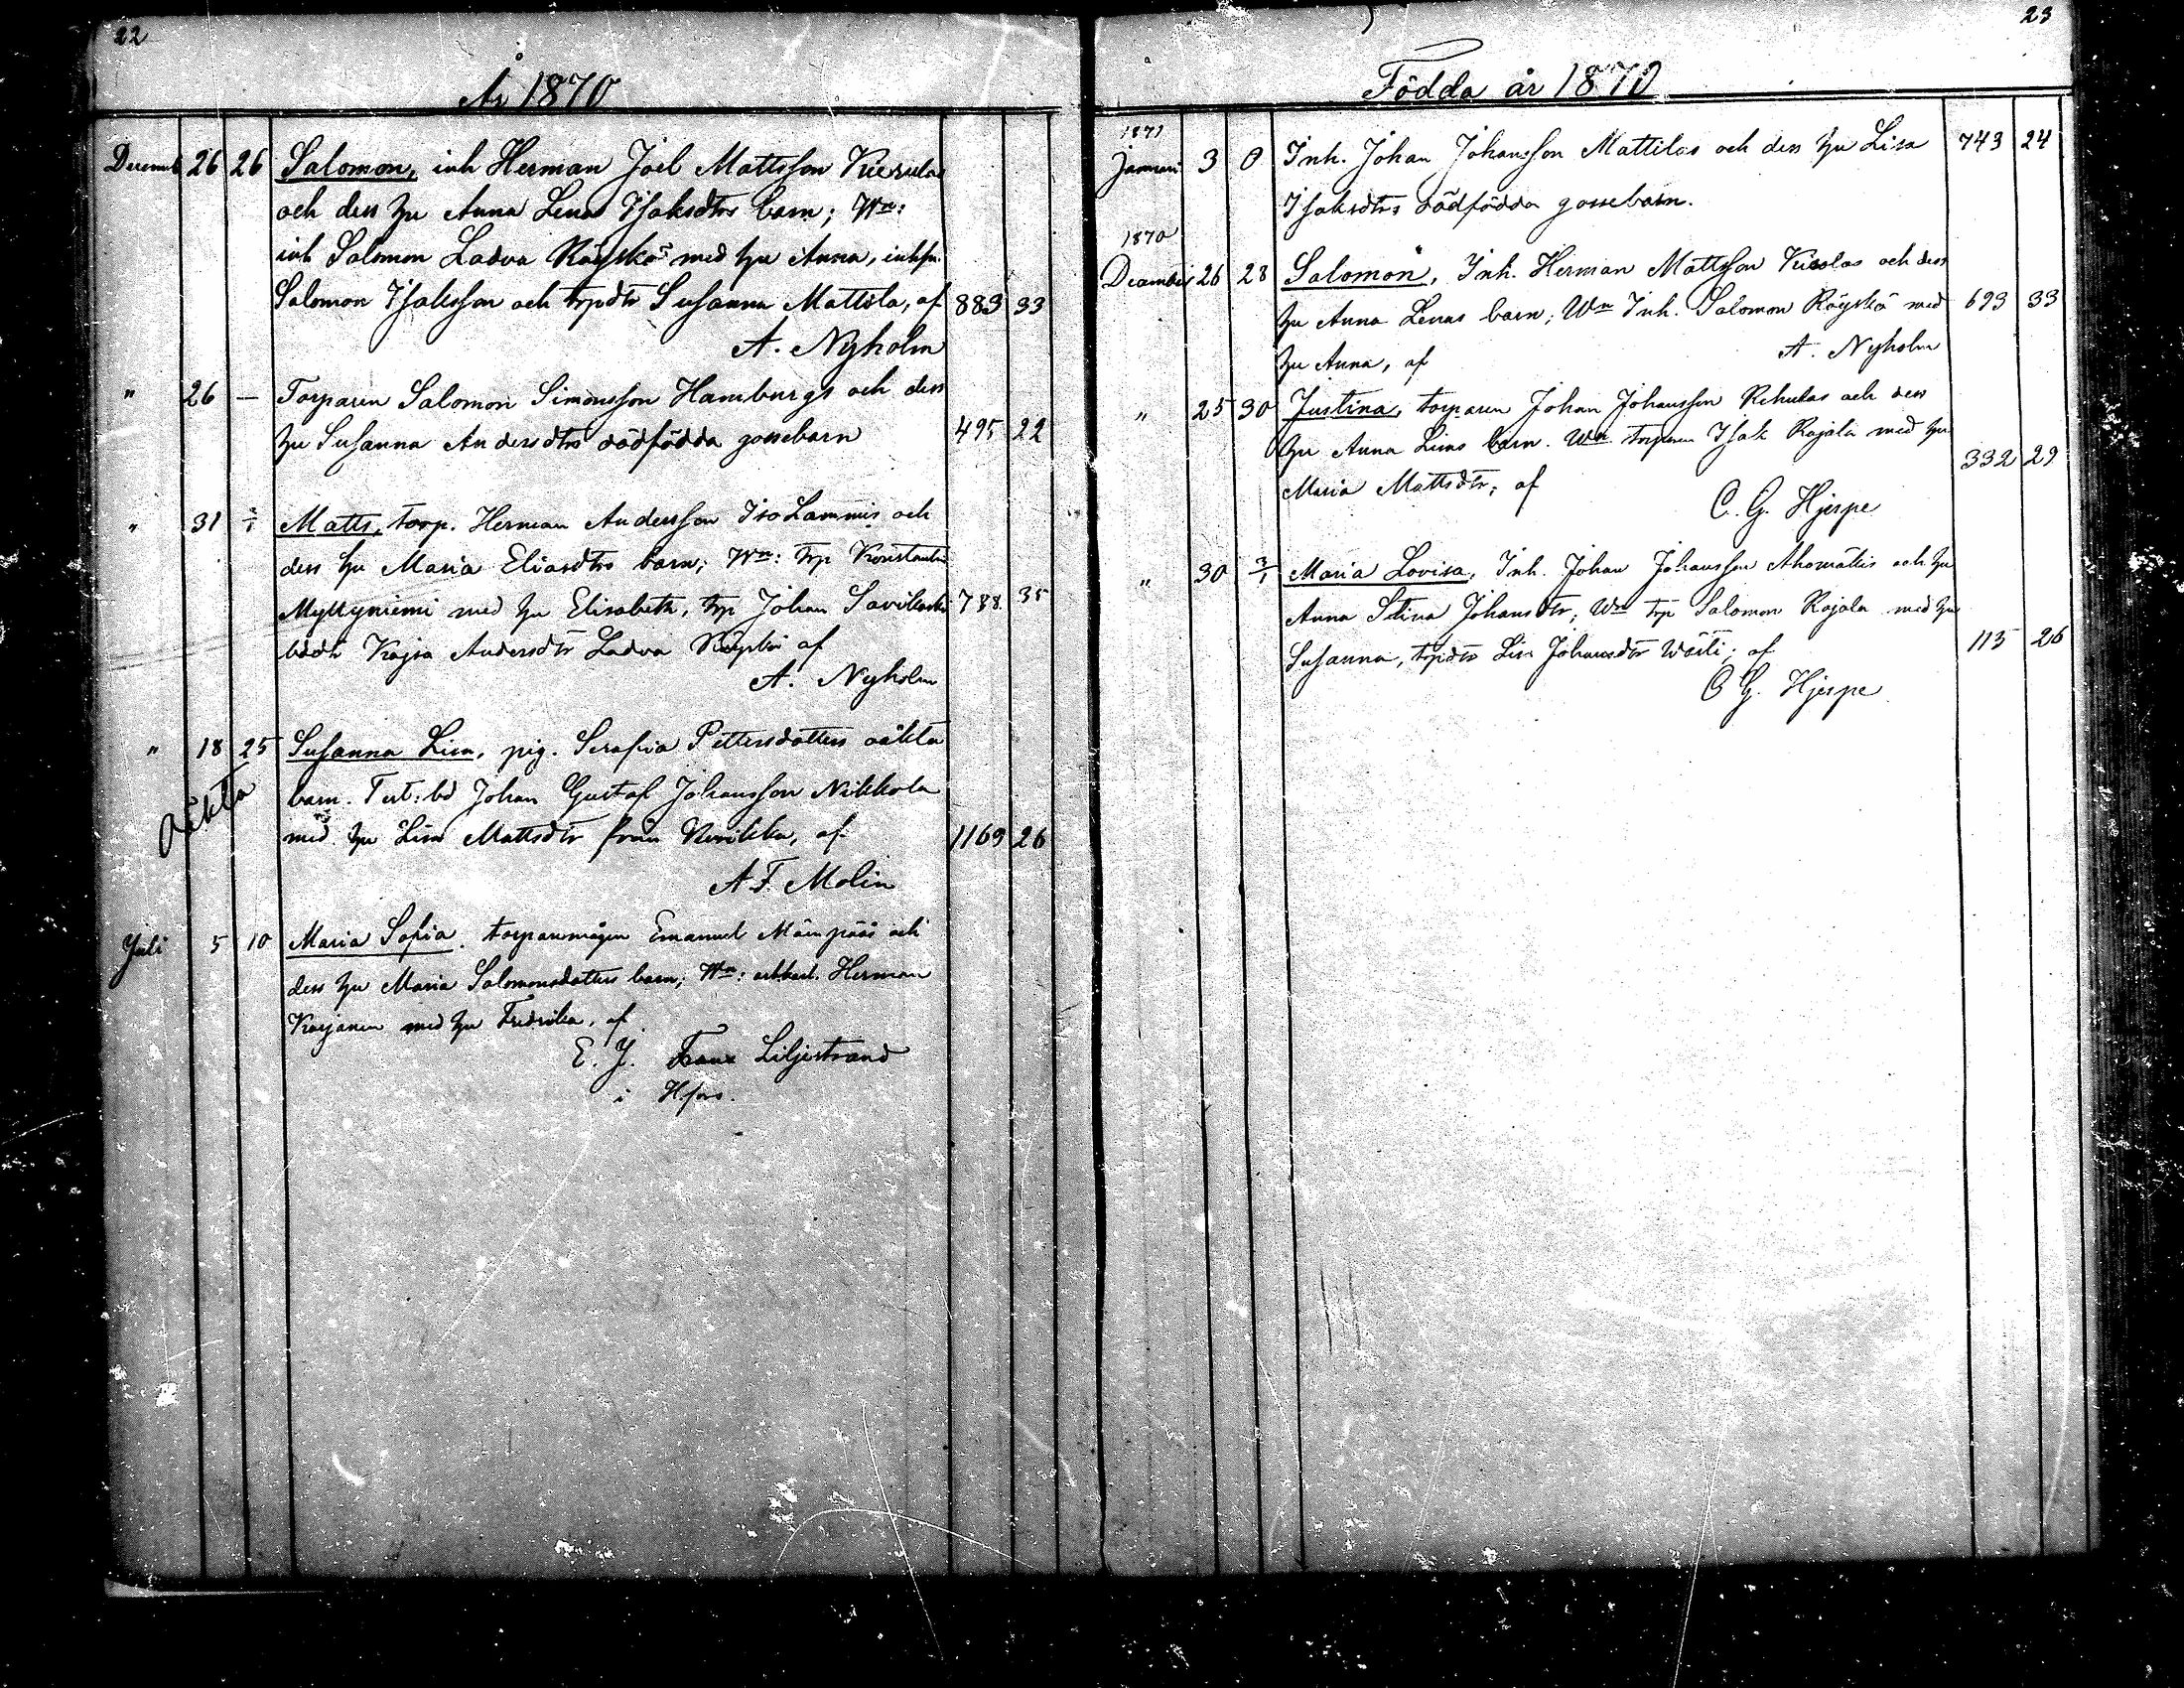 22
År 1870
Decemb 26 26 Salomon, inh Herman Joel Mattsson
och dess hu Anna Lenas Isaksdtrs barn; Wn:
inh Salomon Ladva Räyskö med hu Anna,
Salomon Isaksson och trpdtr Susanna Mattila, af 883 33
A. Nyholm
" 26 — Torparen Salomon Simonsson Hamburgs och dess
hu Susanna Andersdtrs dödfödda gossebarn 495 22
" 31 2/1 Matts, torp. Herman Andersson Iso Lammis och
dess hu Maria Eliasdtrs barn; Wn: trp Konstantin
Myllyniemi med hu Elisabeth, trp Johan 788 35
Kajsa Andersdtr Ladva Räyskö af
A. Nyholm
" 18 25 Susanna Lisa, pig. Serafia Pettersdotters oäkta
oäkta
barn. Test: bd Johan Gustaf Johansson Nikkola
med hu Lisa Mattsdtr från 1169 26
A F. Molin
Juli 5 10 Maria Sofia. torparemågen Emanuel och
dess hu Maria Salomonsdotters barn; Wn: Herman
Karjanen med hu Fredrika, af
E. J. Franz Liljestrand
i Hfors.
23
Födda år 1870
1871
Januari 3 0 Inh. Johan Johansson Mattilas och dess hu Lisa 743 24
Isaksdtrs dödfödda gossebarn.
1870
December 26 28 Salomon, Inh. Herman Mattsson och dess
hu Anna Lenas barn; Wn Inh. Salomon Räyskö med 693 33
hu Anna, af A. Nyholm
" 25 30 Justina, torparen Johan Johansson Rehulas och dess
hu Anna Lisas barn. Wn. torparen Isak Rajala med hu
Maria Mattsdtr; af 332 29
C. G. Hjerpe
" 30 3/1 Maria Lovisa, Inh. Johan Johansson och hu
Anna Stina Johansdtr; Wn trp Salomon Rajala med hu
Susanna, trpdtr Lisa Johansdtr; af 113 26
C G. Hjerpe